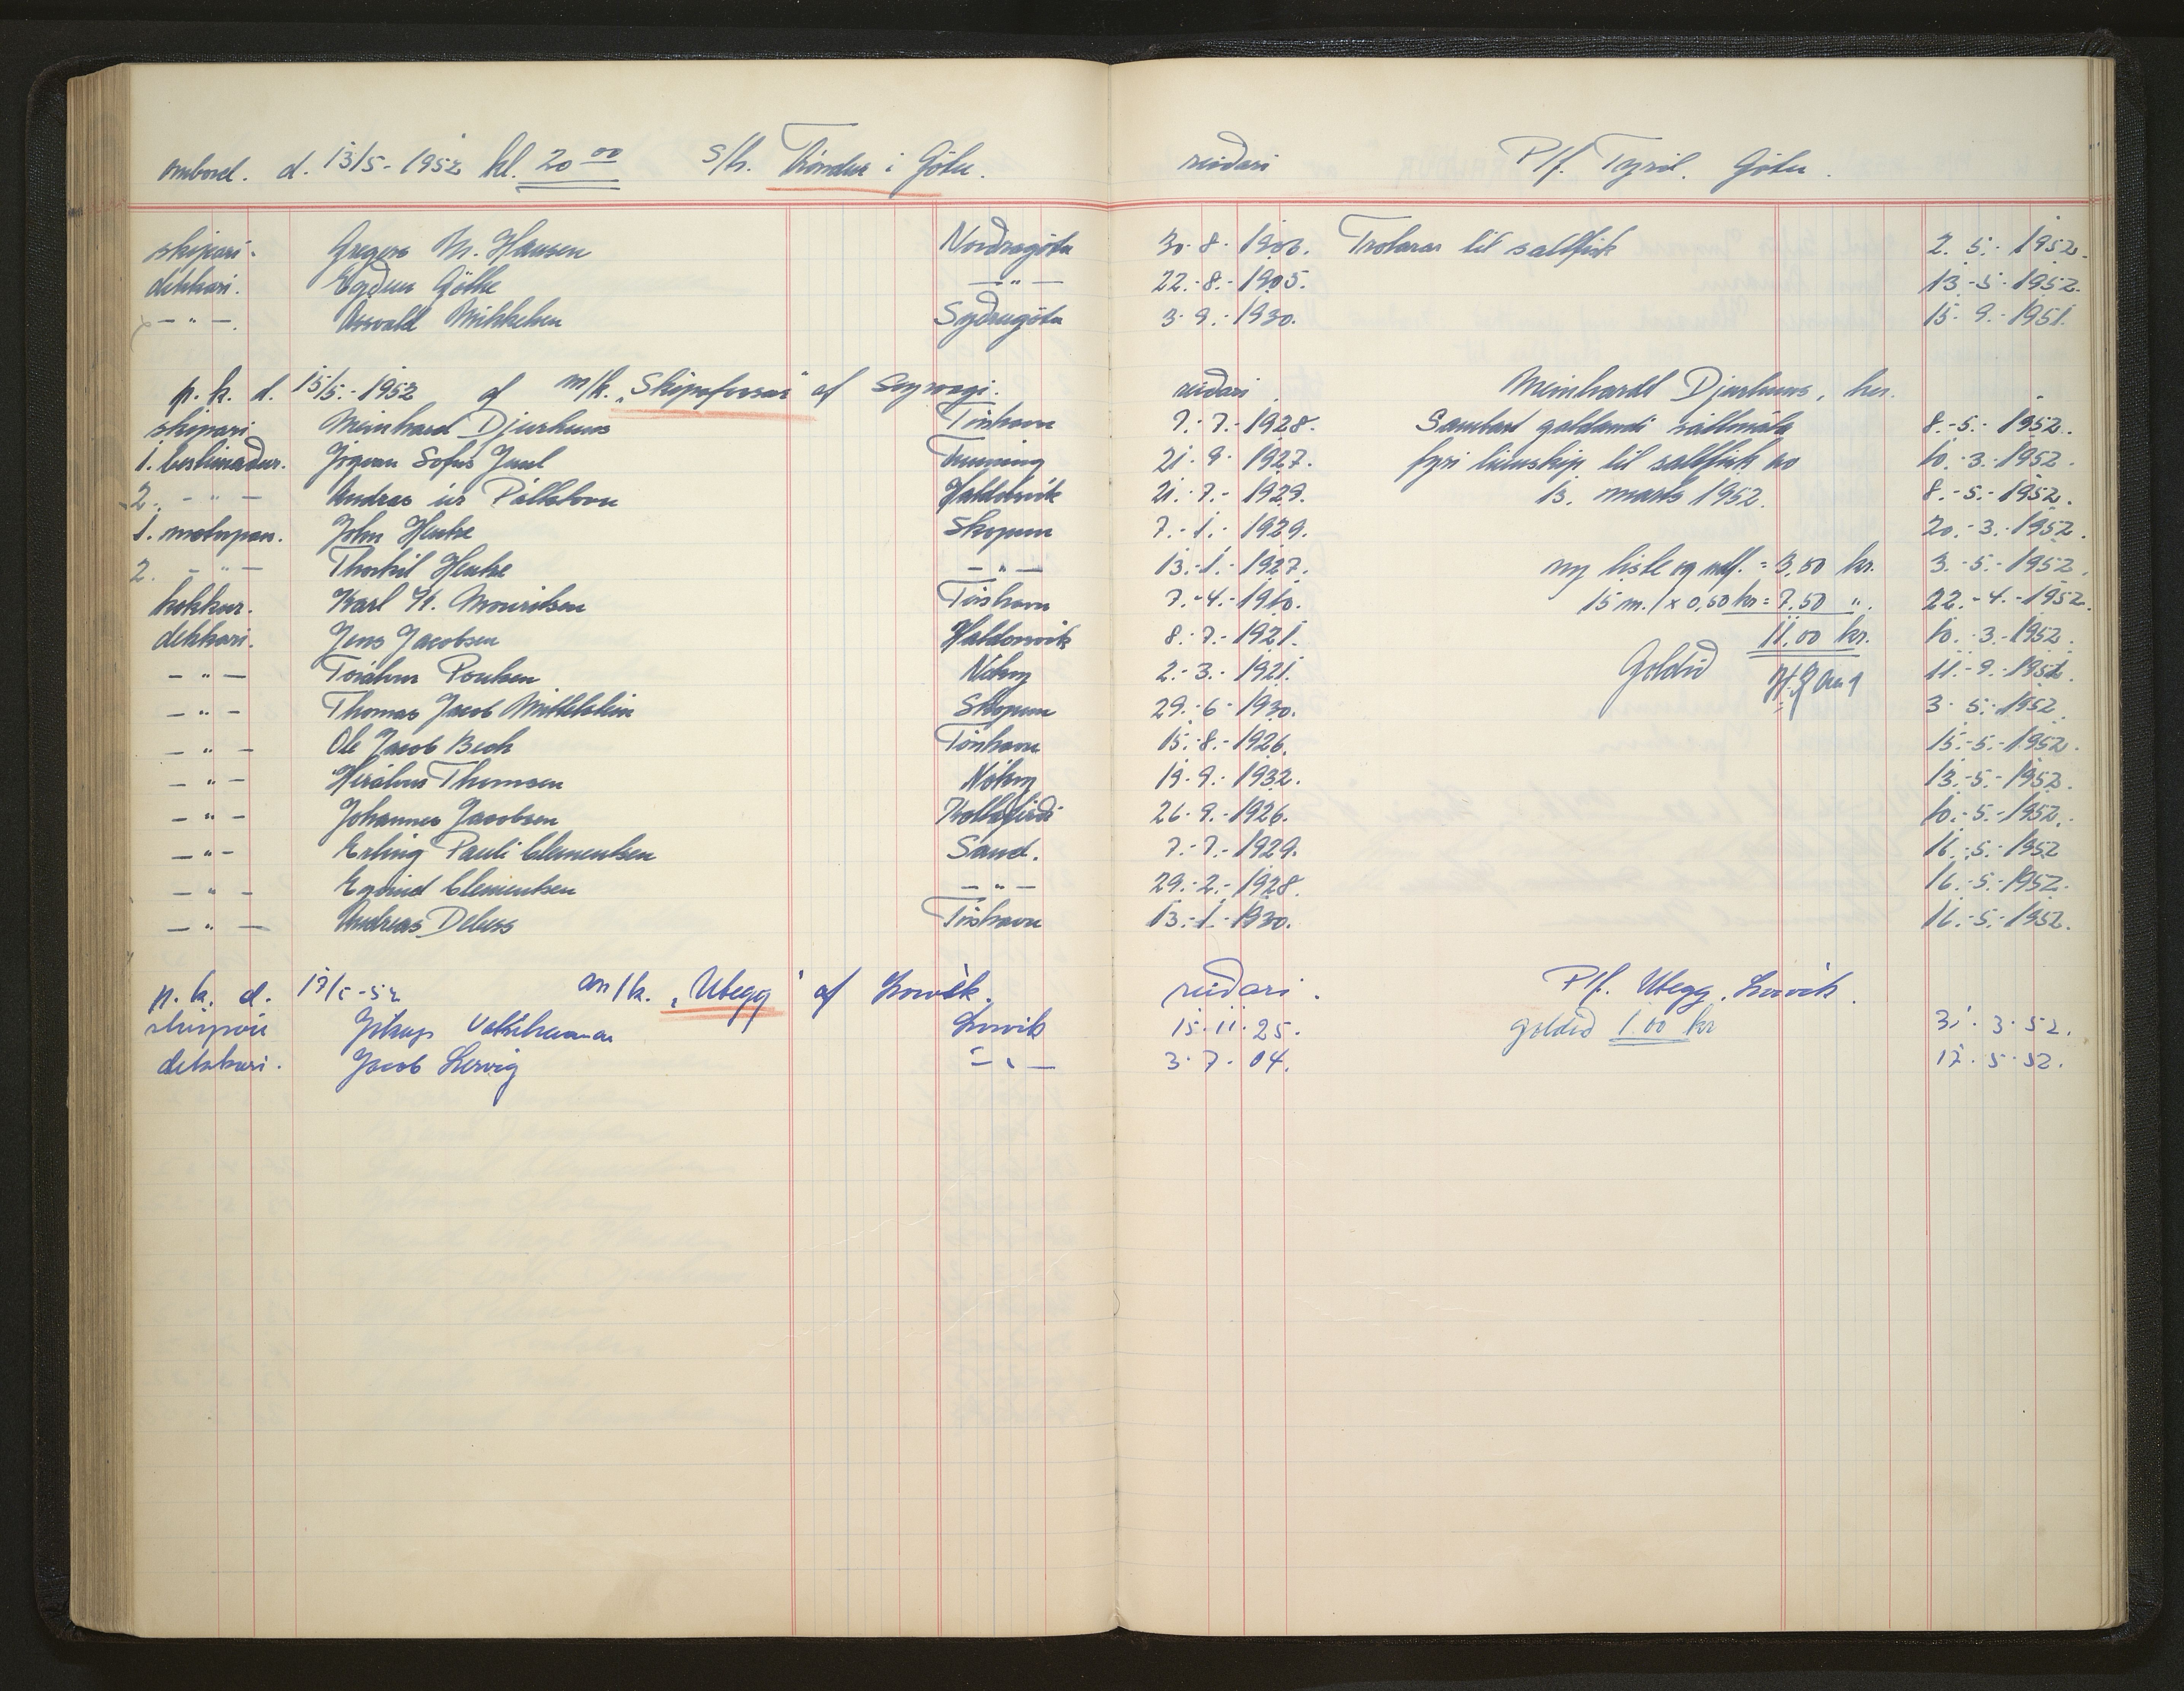 ombord. d. 13/5 - 1952 kl. 20 00 S/k. Tróndur í Gøtu. reiðari P/f. Tyril. Gøtu.
skipari. Gregers M. Hansen Norðragøta 30.-8.-1906. Trolarar til saltfisk 2.-5.-1952.
dekkari. Eyðun Gøthe — " — 22.-8.-1905. 13.-5.-1952.
— " —. Osvald Mikkelsen Syðrugøta 3.-9.-1930. 15.-9.-1951.
p. k. d. 15/5.-1952 af m/k. „Skipafossur" af reiðari Meinhardt Djurhuus, her.
skipari Meinhard Djurhuus Tórshavn 7.-7.-1928. Sambært galdandi sáttmála 8.-5.-1952.
1. bestimaður. Jógvan Sofus Juul 21.-9.-1927. fyri línuskip til saltfisk 10.-3.-1952.
2. — " — Andras úr Pállstovu Haldorsvík 21.-7.-1929. 13. marts 1952. 8.-5.-1952.
1. motorpas. John Hentze Skopun 7.-1.-1929. 20.-3.-1952.
2. — " — Thorkil Hentze — " — 13.-1.-1927. ny liste og udf. = 3,50 kr. 3.-5.-1952.
kokkur. Karl K. Mouritsen Tórshavn 7.-4.-1910. 15 m./ x 0,50 kr = 7.50 ". 22.-4.-1952.
dekkari. Jens Jacobsen Haldorsvík 8.-7.-1921. 11.00 kr. 10.-3.-1952.
— " — Tórálvur Poulsen Nólsoy 2.-3.-1921. Goldið 11.-9.-1951.
— " — Thomas Jacob Mittelstein Skopun 29.-6-1930. 3.-5.-1952.
— " — Ole Jacob Bech Tórshavn 15.-8.-1926. 15.-5.-1952.
— " — Herálvur Thomsen Nólsoy 19.-9.-1932. 13.-5.-1952.
— " — Johannes Jacobsen Kollafjørð 26.-9.-1926. 10.-5.-1952.
— " — Erling Pauli Clementsen Sand. 7.-7.-1929. 16.-5.-1952
— " — Eyvind Clementsen — " — 29.-2.-1928. 16.-5.-1952.
— " — Andreas Debess Tórshavn 13.-1.-1930. 16.-5.-1952.
p. k. d. 17/5-52 m/k. „Ubegg" af Lorvík. reiðari. P/f. Ubegg, Lorvík.
skipari Jókup Lorvík 15.-11.-25. goldið 1.00 kr 31.-3-52.
dekkari. Jacob Lervig — " — 3.-7.-04. 17.-5-52.